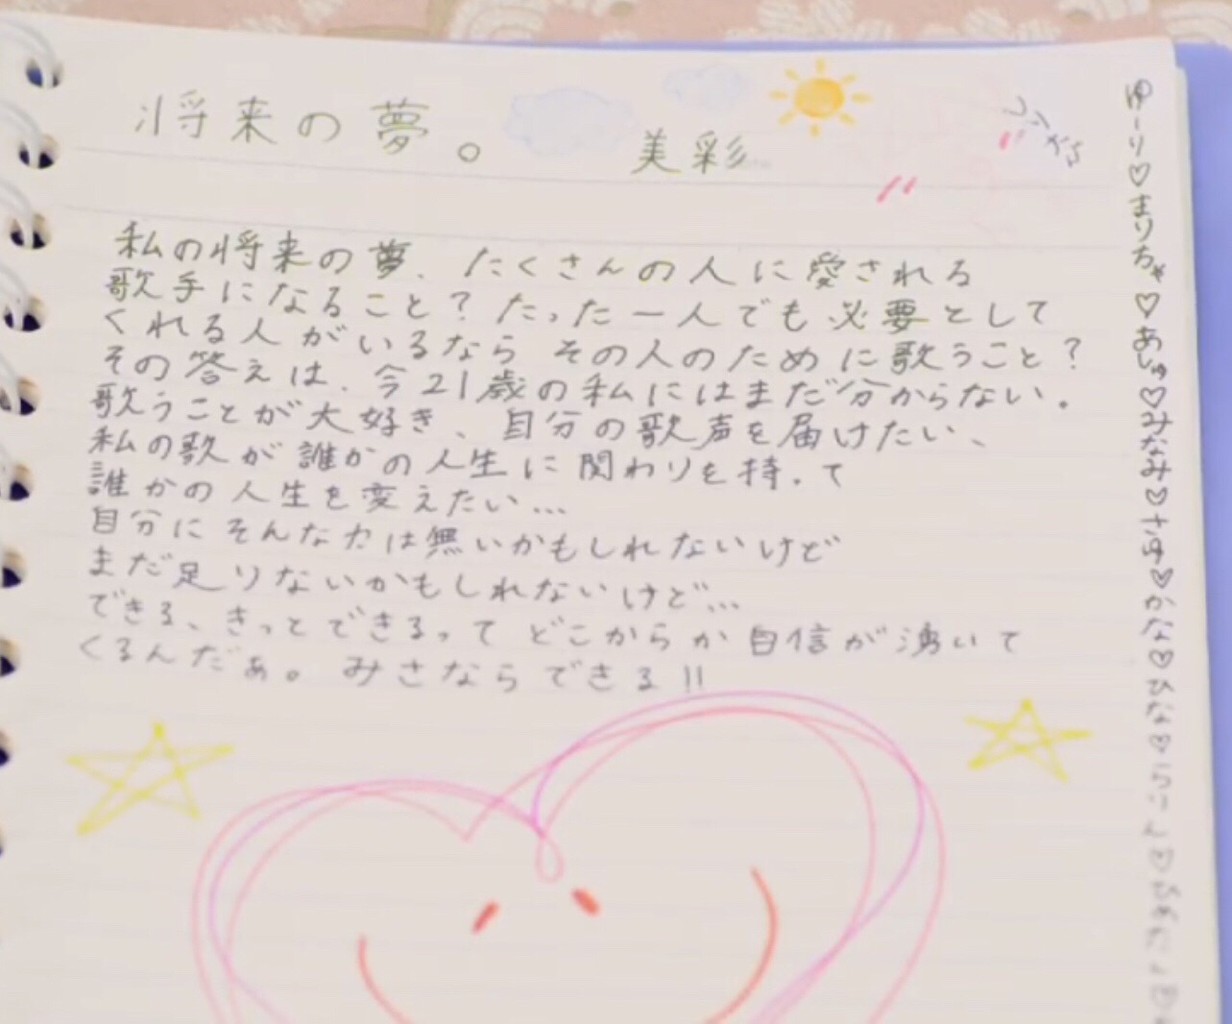 将来の夢。
美彩
私の将来の夢、たくさんの人に愛される
歌手になること？たった一人でも必要として
くれる人がいるなら その人のために歌うこと？
その答えは、今21歳の私にはまだ分からない。
歌うことが大好き、自分の歌声を届けたい、
私の歌が誰かの人生に関わりを持って
誰かの人生を変えたい…
自分にそんな力は無いかもしれないけど
まだ足りないかもしれないけど…
できる、きっとできるって どこからか自信が湧いて
くるんだぁ。みさならできる!!
ゆーり♡まりちゃ♡あしゅ♡みなみ♡さゆ♡かな♡ひな♡らりん♡